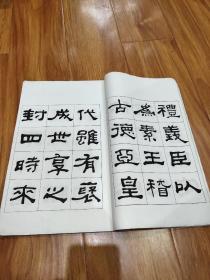 禮義臣以
為素王稽
古德亞皇
代雖有褒
成世享之
封四時來